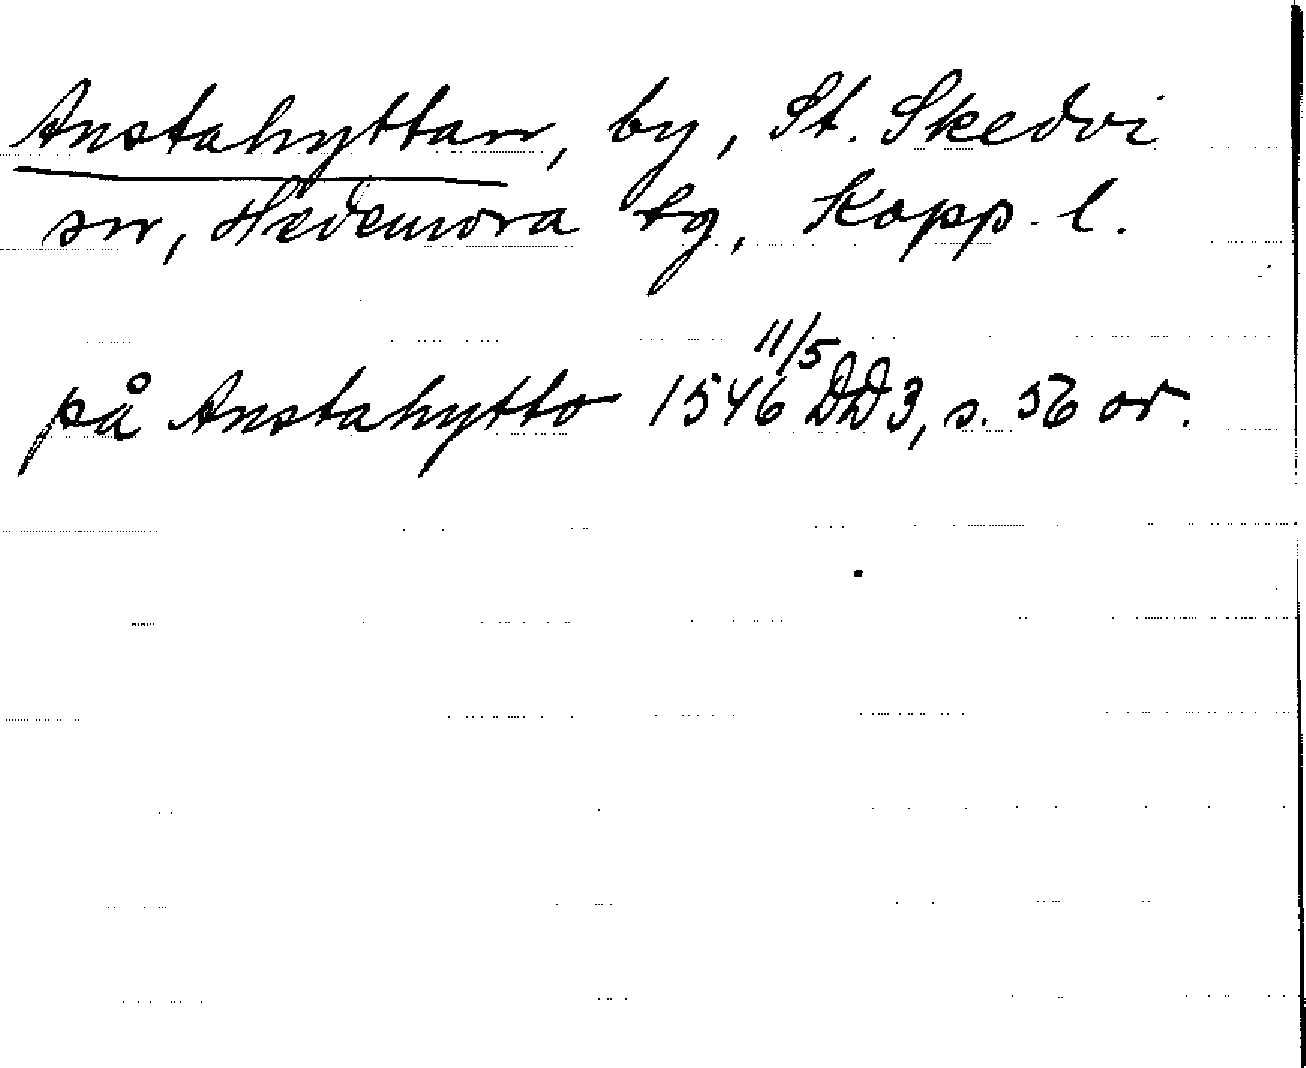 Anstahyttan, by, St. Skedvi
sn, Hedemora tg, Kopp. l.
på Anstahytto 1546 11/5 DD 3, s. 56 or.